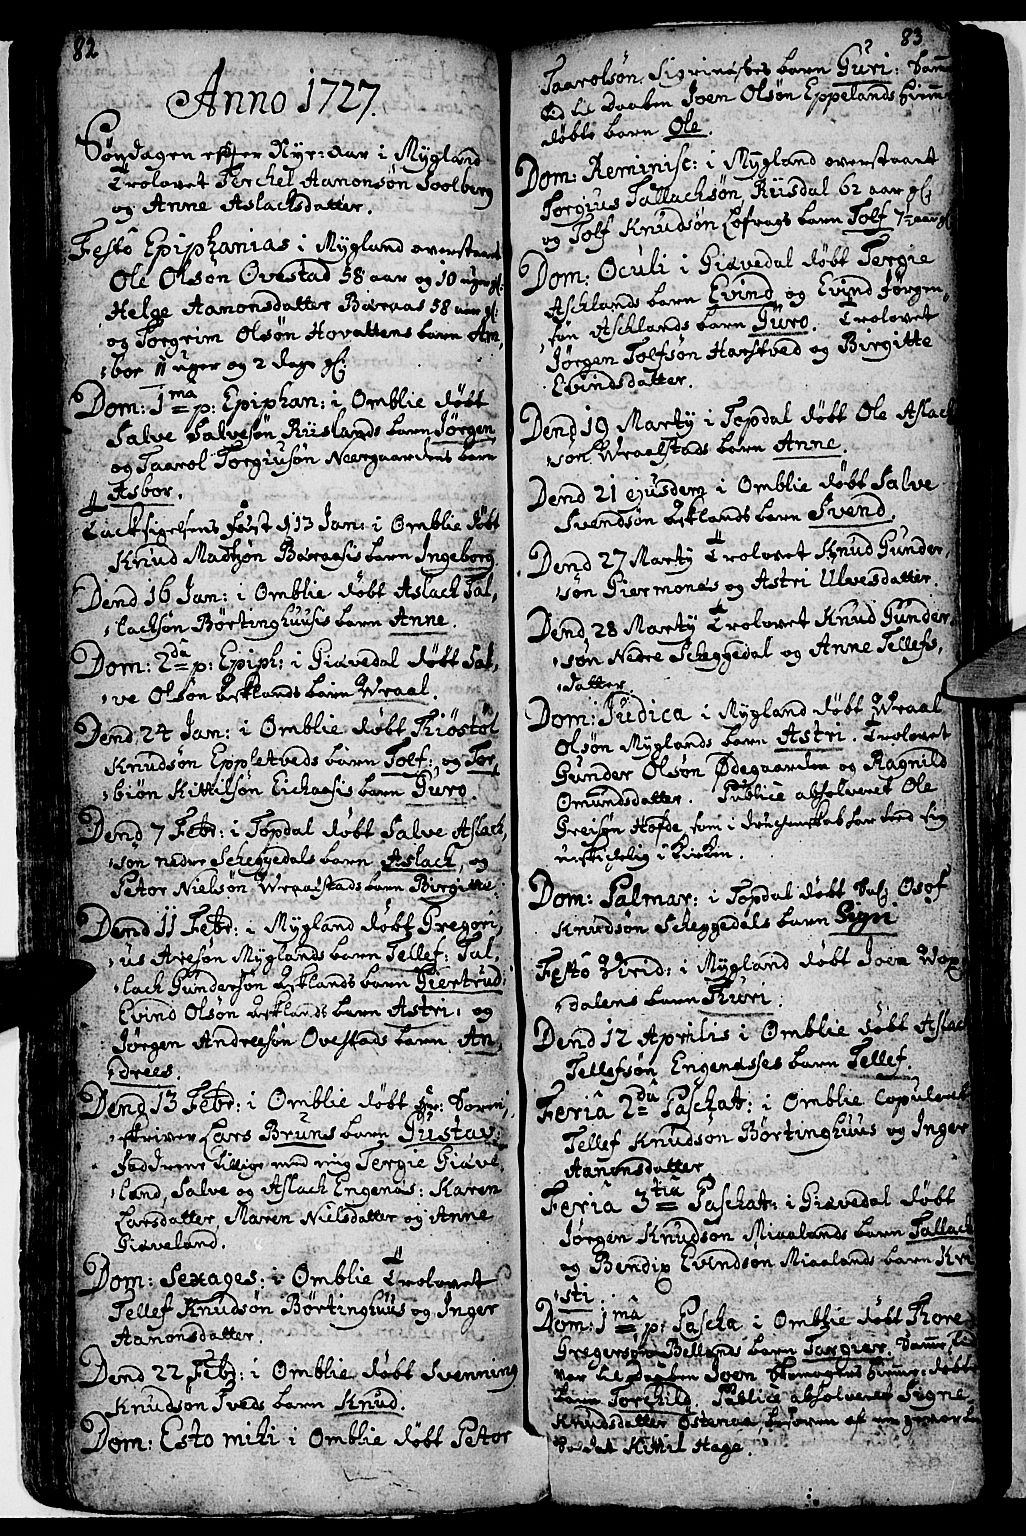 82
Anno 1727.
Søndagen efter Nye-Aar i Mygland
Trolovet Terchel Aanonsøn Soolberg
og Anne Aslachsdatter.
Festô Epiphanias i Mygland overstaaet
Ole Olsøn Ovestad 58 aar og 10 uger gl:
Helge Aamonsdatter Baraas 58 aar gl:
og Torgrim Olsøn Hovattens barn Am-
bor 11 uger og 2 dage gl:
Dom: 1ma p: Epiphan: i Omblie døbt
Salve Salvesøn Riislands barn Jørgen
og Taarol Torgiusøn Neergaardens barn
Asbor.
Tacksigelsens Fæst d 13 Jan: i Omblie døbt
Knud Madsøn Baraasis barn Ingeborg
Dend 16 Jan: i Omblie døbt Aslach Tal-
lachsøn Børtinghuusis barn Anne.
Dom: 2da p: Epiph: i Giævedal døbt Sal-
ve Olsøn Æsklands barn Wraal.
Dend 24 Jan: i Omblie døbt Kiøstøl
Knudsøn Eppletveds barn Tolf: og Tor-
biøn Kittilsøn Eichaasis barn Guro
Dend 7 Febr: i Topdal døbt Salve Aslach-
søn nedre Scheggedals barn Aslach, og
Petor Nielsøn Wraalstads barn Birgitte
Dend 11 Febr: i Mygland døbt Gregori-
us Aresøn Myglands barn Tellef: Tal-
lach Gundersøn Æsklands barn Giertrud:
Evind Olsøn Æsklands barn Astri: og
Jørgen Andresøn Ovestads barn An-
drees.
Dend 13 Febr: i Omblie døbt Sr: Soren-
skriver Lars Bruns barn Gustav.
Fadderne tillige med mig Tergie Giæve-
land, Salve og Aslach Engenæs: Karen
Larsdatter, Maren Nielsdatter og Anne
Giæveland.
Dom: Sexages: i Omblie Trolovet
Tellef Knudsøn Børtinghuus og Inger
Aanonsdatter.
Dend 22 Febr: i Omblie døbt Svenning
Knudsøn Tveds barn Knud.
Dom: Esto mihi i Omblie døbt Petor
83
Taarolsøn Sigrinæses barn Guri: Samme
til Daaben Joen Olsøn Eppelands hiemme
døbte barn Ole.
Dom: Reminisc: i Mygland overstaaet
Torgius Tallachsøn Riisdal 62 aar gl:
og Tolf Knudsøn Lofrags barn Tolf 7½ aar gl
Dom: Oculi i Giævedal døbt Tergie
Aschlands barn Evind, og Evind Jørgen-
søn Aschlands barn Guro. Trolovet
Jørgen Tolfsøn Harstved og Birgitte
Evindsdatter.
Dend 19 Marty i Topdal døbt Ole Aslach-
søn Wraalstads barn Anne.
Dend 21 ejusdem i Omblie døbt Salve
Svendsøn Æsklands barn Svend.
Dend 27 Marty Trolovet Knud Gunder-
søn Giermonæs og Astri Ulvesdatter.
Dend 28 Marty Trolovet Knud Gunder-
søn Nedre Scheggedal og Anne Tellefs-
datter.
Dom: Judica i Mygland døbt Wraal
Olsøn Myglands barn Astri. Trolovet
Gunder Olsøn Ødegaarden og Ragnild
Omundsdatter. Publicè absolveret Ole
Greisøn Hofde, som i druchenskab har teed sig
uskichelig i Kircken.
Dom: Palmar: i Topdal døbt Sal: Osof
Knudsøn Scheggedals barn Sign
Festô Virid: i Mygland døbt Joen Wox-
dalens barn Kuri.
Dend 12 Aprilis i Omblie døbt Aslach
Tellefsøn Engenæsses barn Tellef.
Feriâ 2dâ Paschat: i Omblie Copuleret
Tellef Knudsøn Børtinghuus og Inger
Aanonsdatter
Feriâ 3tiâ Paschat: i Giævedal døbt
Jørgen Knudsøn Miaalands barn Tallach
og Bendix Evindsøn Miaalands barn Kri-
sti.
Dom: 1mâ p: Pascha i Omblie døbt Thore
Gregersøn Bellands barn Torgier. Samme tid
var til Daaben Joen hiemme døbte
barn Torchild. Publicè absolveret Signe
Knudsdatter Østenaa, besoven af en gevorben
Soldat Kittil Hage.